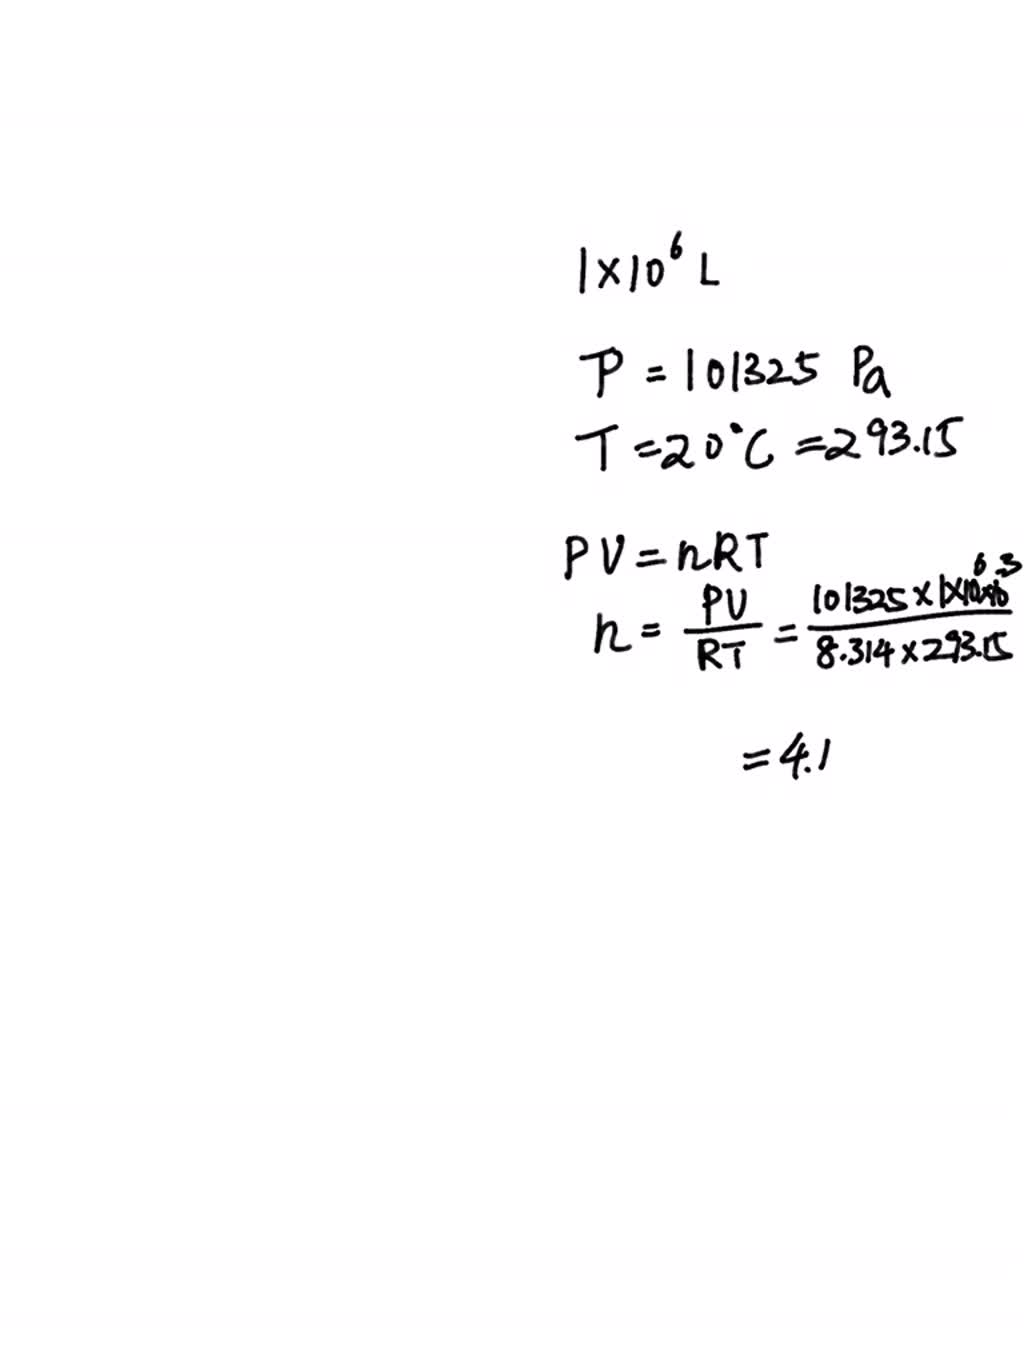 1×10⁶ L
P = 101325 Pa
T = 20°C = 293.15
PV = nRT
n = PV/RT = 101325 × 1×10⁶×10⁻³ / 8.314 × 293.15
= 4.1